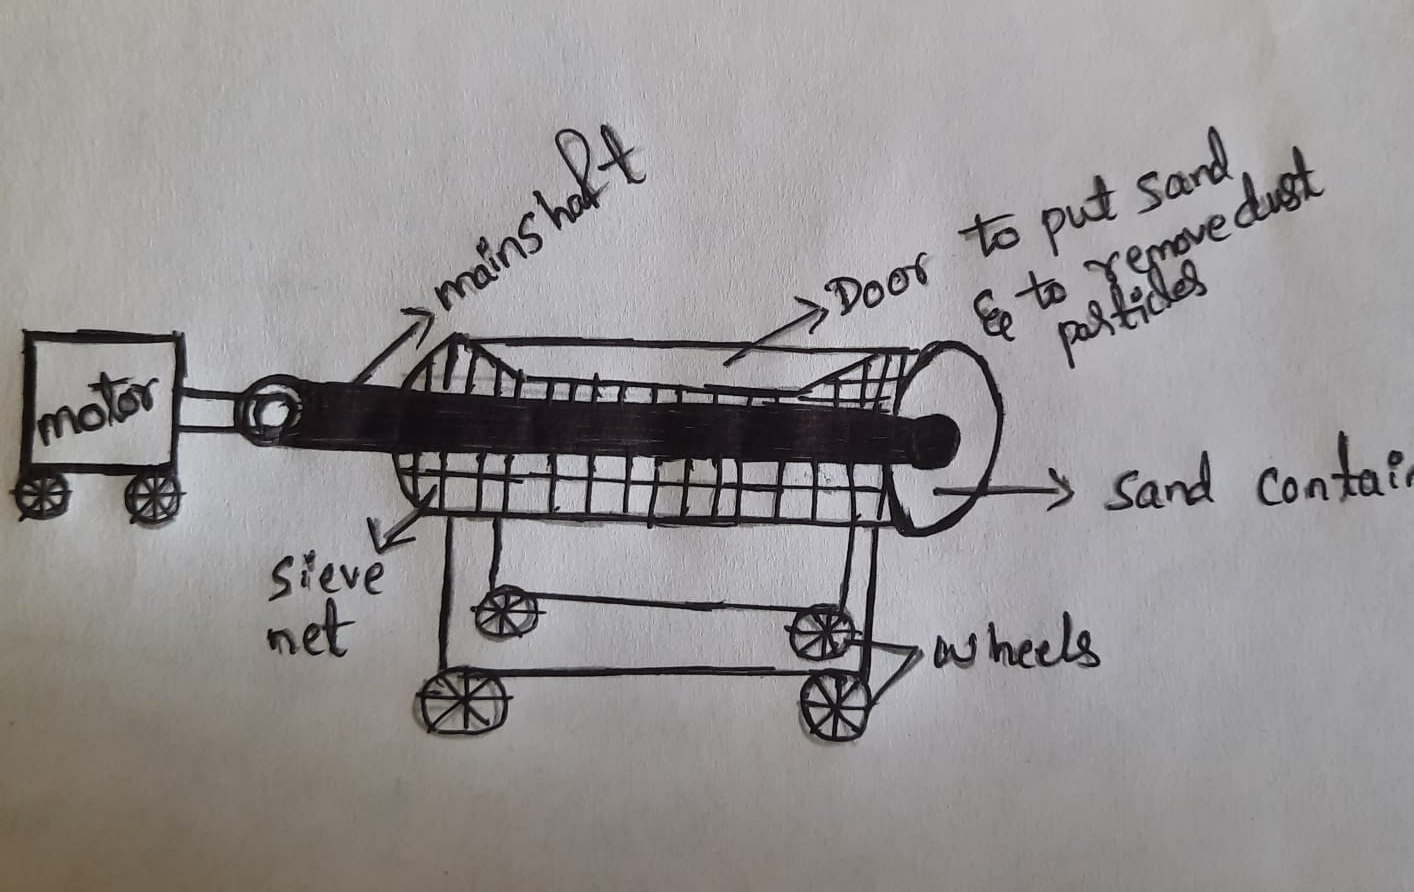 mainshaft
Door to put sand
& to remove dust
particles
motor
Sand contain
Sieve
net
wheels